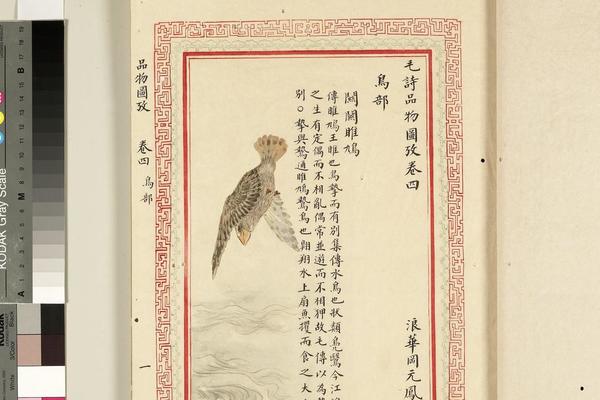 毛詩品物圖攷卷四
浪華岡元鳳
鳥部
關關雎鳩
傳雎鳩王雎也鳥摯而有別集傳水鳥也狀類鳧鷖今江
之生有定偶而不相亂偶常並遊而不相狎故毛傳以為
別○摯與鷙通雎鳩鷙鳥也翱翔水上扇魚攫而食之大
品物圖攷 卷四 鳥部 一
KODAK Gray Scale
Kodak
A 1 2 3 4 5 6 M 8 9 10 11 12 13 14 15 B 17 18 19
3/Color
Black
White